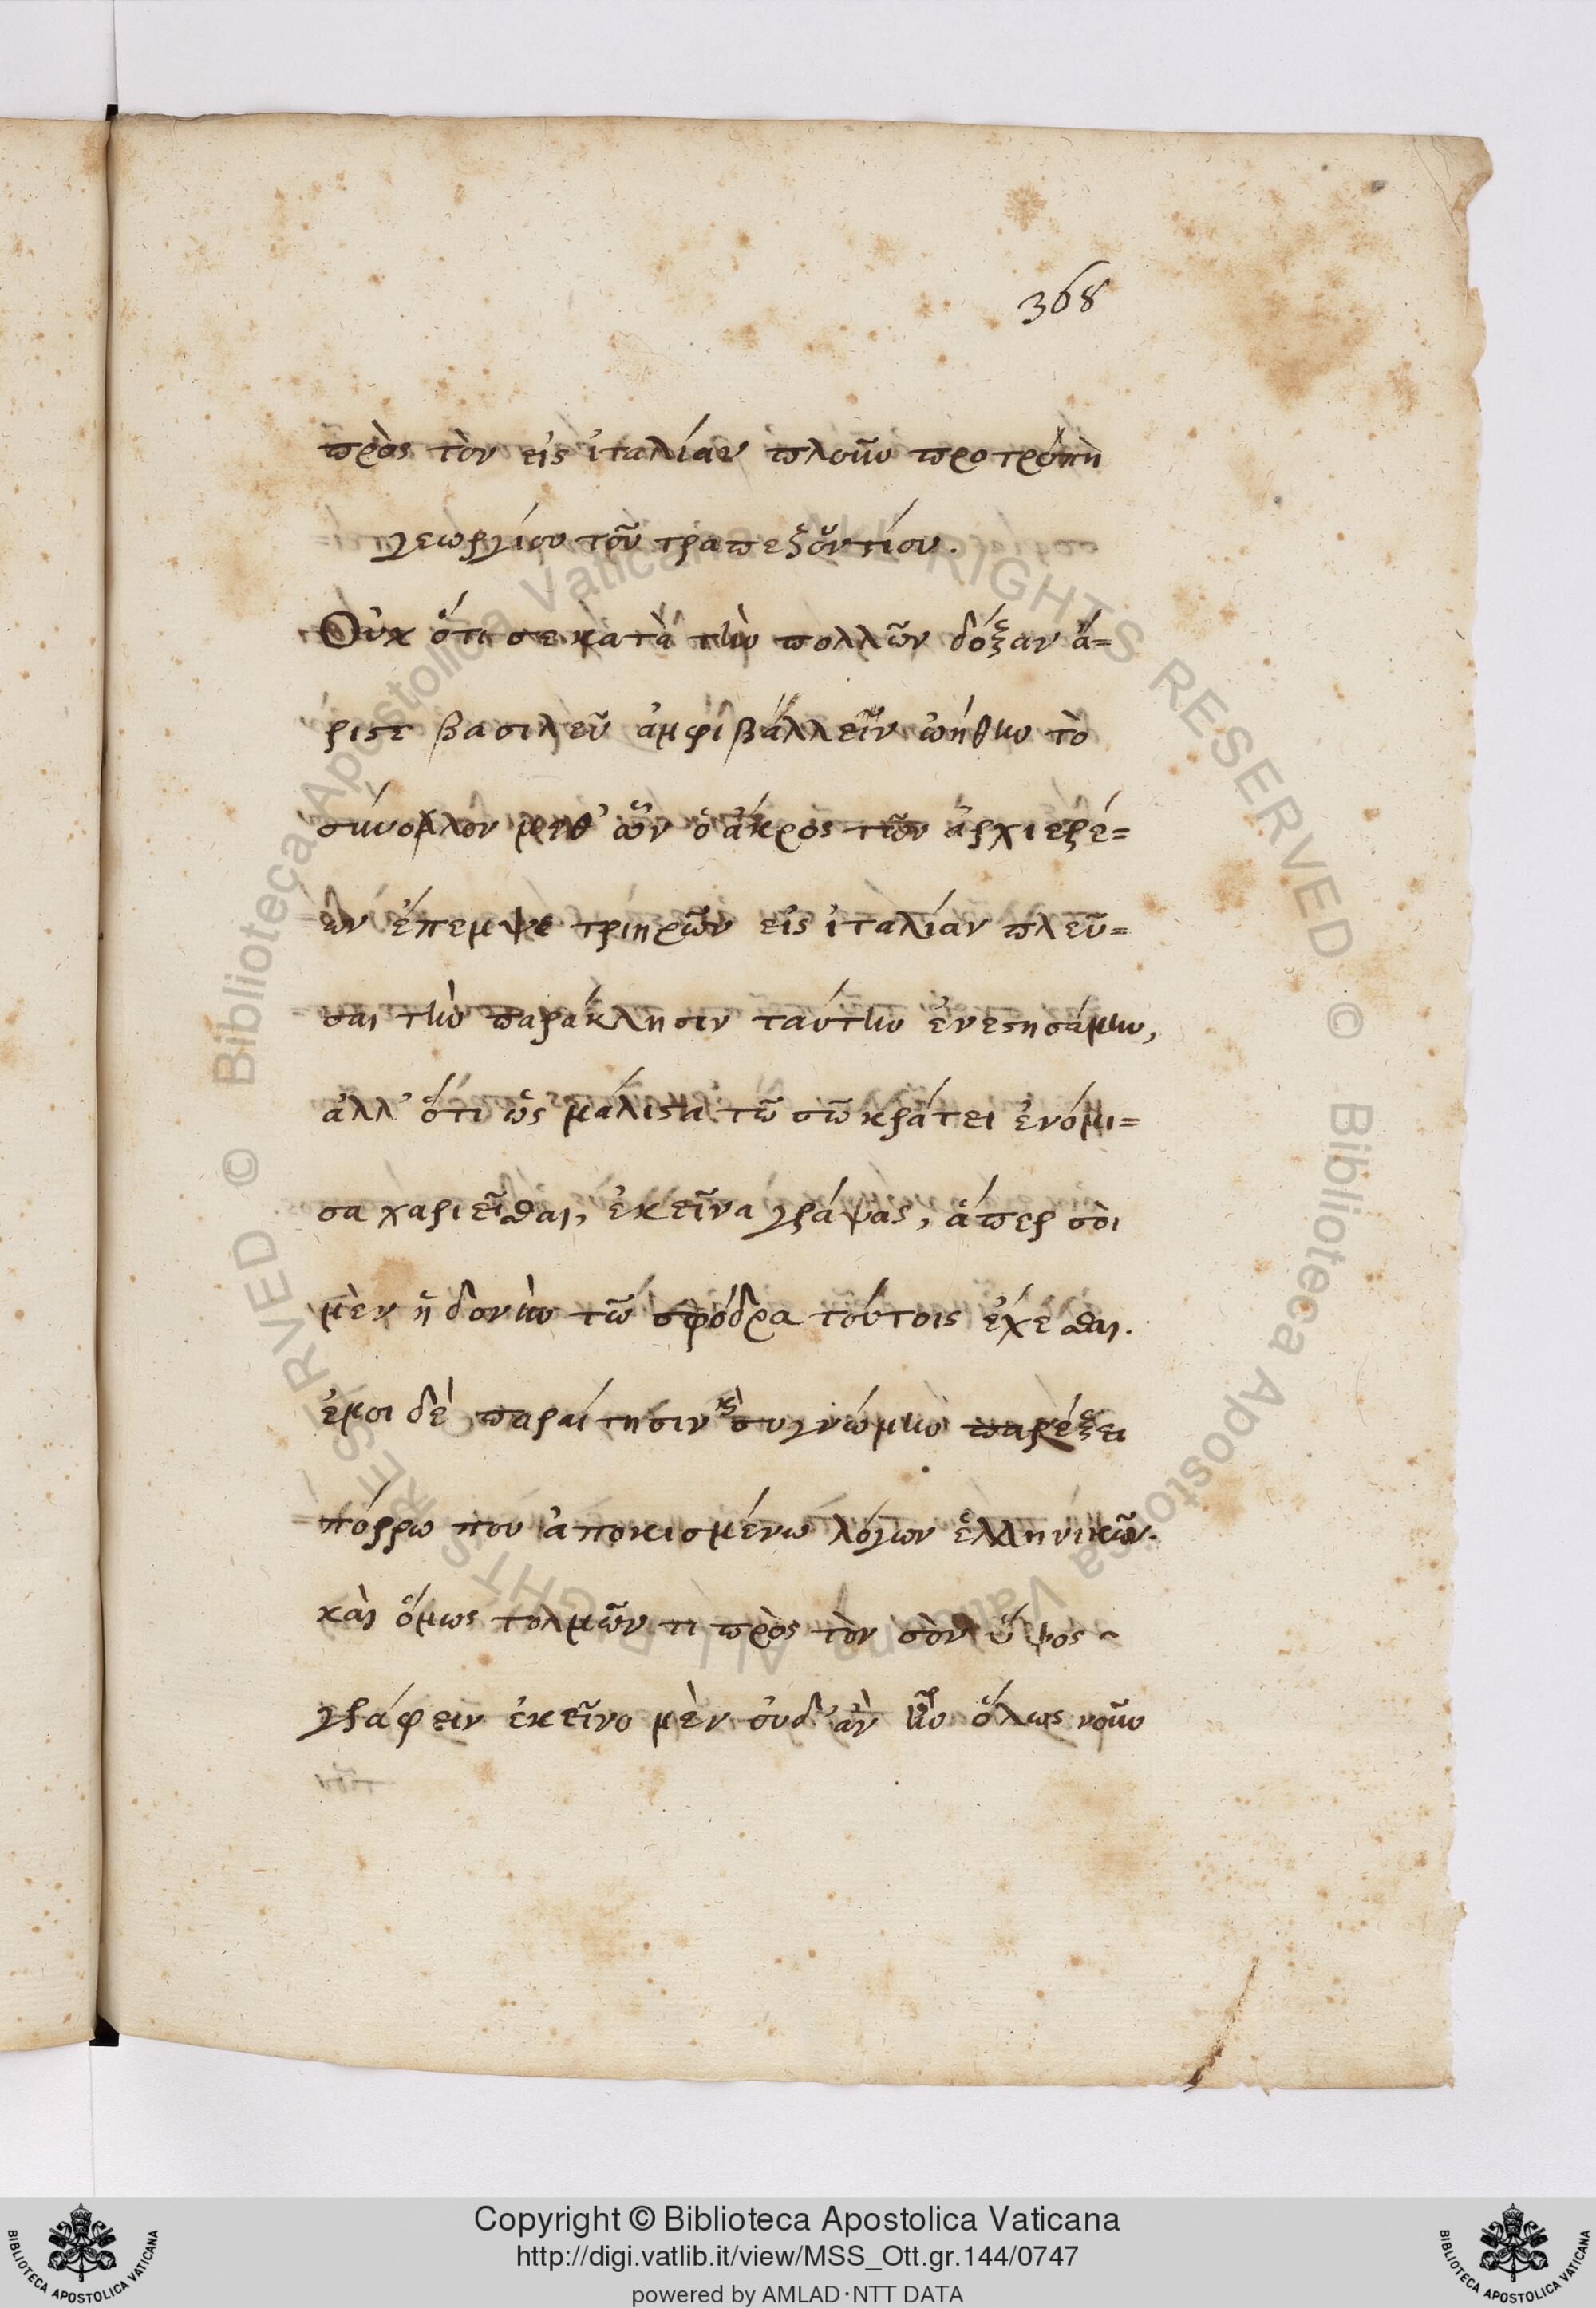 368
πρὸς τὸν εἰς ἰταλίαν πλοῦν προτρόπὴ
γεωργίου τοῦ τραπεζουντίου.
Οὐχ ὅτι σε κατὰ τὴν πολλῶν δόξαν ἄ=
ριστε βασιλεῦ ἀμφιβάλλειν ᾠήθην τὸ
σύνολλον μεθ' ὧν ὁ ἄκρος τῶν ἀρχιερέ=
ων ἔπεμψε τριηρῶν εἰς ἰταλίαν πλεῦ=
σαι τὴν παράκλησιν ταύτην ἐνεστησάμην,
ἀλλ' ὅτι ὡς μάλιστα τῶ σῶ κράτει ἐνόμι=
σα χαριεῖσθαι, ἐκεῖνα γράψας, ἅπερ σὸι
μὲν ἡδονὴν τῶ σφόδρα τούτοις ἔχεσθαι.
ἐμοι δὲ παραίτησιν καὶ συγνώμην παρέξει
πόρρω που ἀποκισμένω λόγων ἑλληνικῶν.
καὶ ὅμως τολμῶν τι πρὸς τὸν σὸν ὕψος
γράφειν ἐκεῖνο μὲν οὐδ' ἂν ἦν ὅλως νοῦν
Copyright © Biblioteca Apostolica Vaticana
http://digi.vatlib.it/view/MSS_Ott.gr.144/0747
powered by AMLAD·NTT DATA
BIBLIOTECA APOSTOLICA VATICANA
BIBLIOTECA APOSTOLICA VATICANA
© Biblioteca Apostolica Vaticana ALL RIGHTS RESERVED © Biblioteca Apostolica Vaticana ALL RIGHTS RESERVED